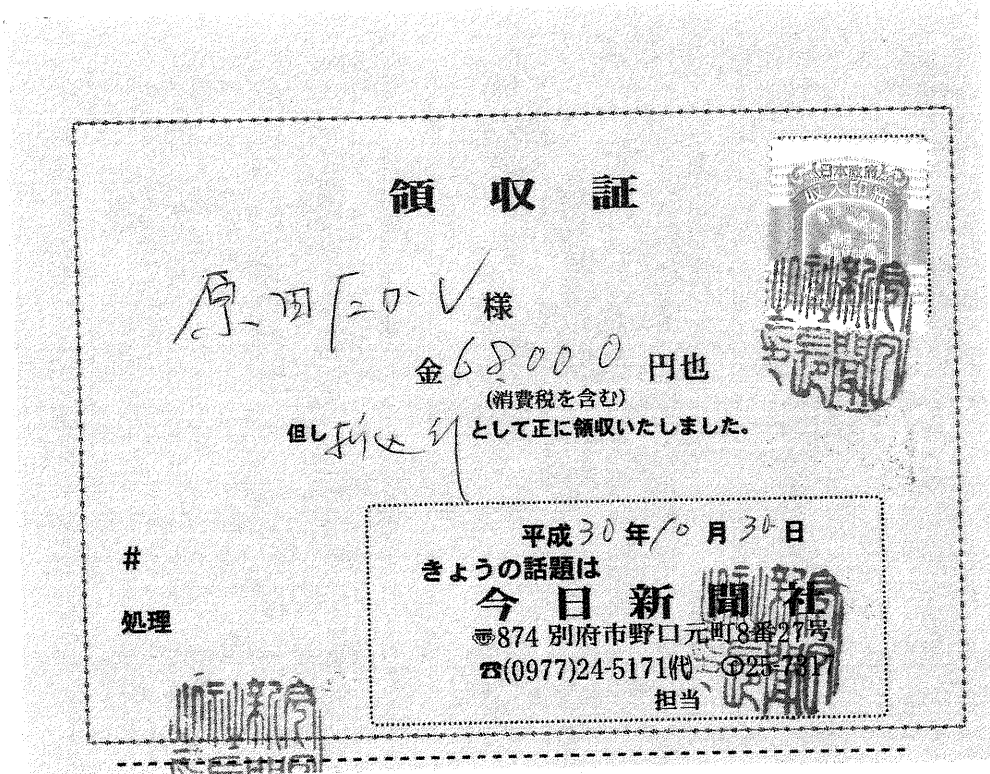 日本政府
収入印紙
領収証
原田たかし様
金68000円也
(消費税を含む)
但し折込料として正に領収いたしました。
平成30年10月30日
#
きょうの話題は
今日新聞社
処理
〒874 別府市野口元町8番27号
☎(0977)24-5171(代) 25-7317
担当